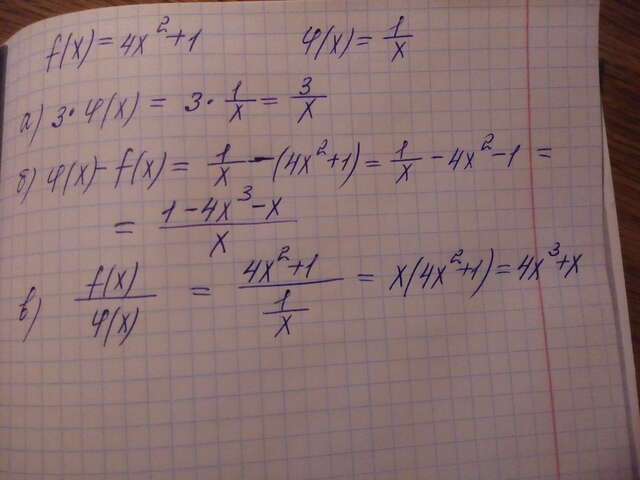 f(x) = 4x² + 1 φ(x) = 1/x
а) 3 · φ(x) = 3 · 1/x = 3/x
б) φ(x) - f(x) = 1/x - (4x² + 1) = 1/x - 4x² - 1 =
= (1 - 4x³ - x)/x
в) f(x)/φ(x) = (4x² + 1)/(1/x) = x(4x² + 1) = 4x³ + x